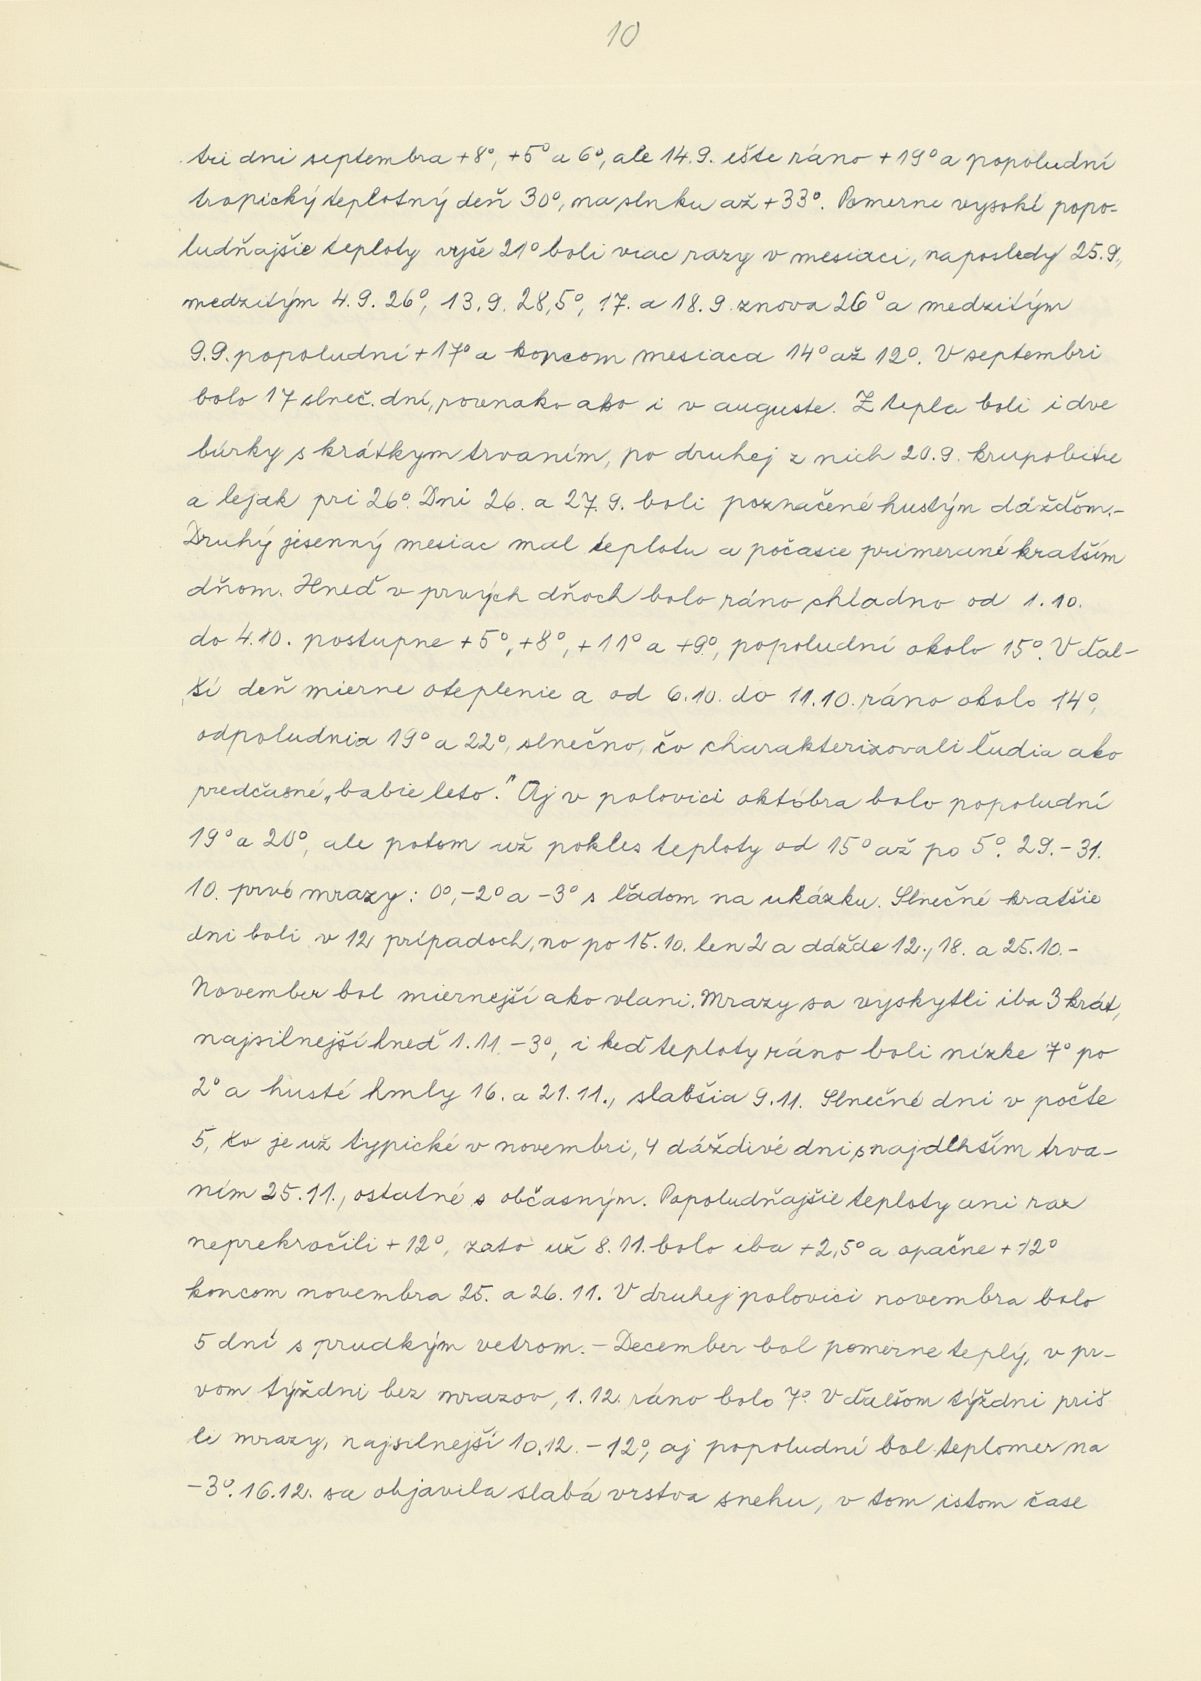 10
tri dni septembra +8°, +5° a 6°, ale 14.9. ešte ráno +19° a popoludní
tropický teplotný deň 30°, na slnku až +33°. Pomerne vysoké popo-
ludňajšie teploty vyše 21° boli viac razy v mesiaci, naposledy 25.9.,
medzitým 4.9. 26°, 13.9. 28,5°, 17. a 18.9. znova 26° a medzitým
9.9. popoludní +17° a koncom mesiaca 14° až 12°. V septembri
bolo 17 slneč. dní, rovnako ako i v auguste. Z tepla boli i dve
búrky s krátkym trvaním, po druhej z nich 20.9. krupobitie
a lejak pri 26°. Dni 26. a 27.9. boli poznačené hustým dážďom.-
Druhý jesenný mesiac mal teplotu a počasie primerané kratším
dňom. Hneď v prvých dňoch bolo ráno chladno od 1.10.
do 4.10. postupne +5°, +8°, +11° a +9°, popoludní okolo 15°. V ďal-
ší deň mierne oteplenie a od 6.10. do 11.10. ráno okolo 14°,
odpoludnia 19° a 22°, slnečno, čo charakterizovali ľudia ako
predčasné „babie leto." Aj v polovici októbra bolo popoludní
19° a 20°, ale potom už pokles teploty od 15° až po 5°. 29.-31.
10. prvé mrazy: 0°, -2° a -3° s ľadom na ukážku. Slnečné kratšie
dni boli v 12 prípadoch, no po 15.10. len 2 a dážde 12., 18. a 25.10.-
November bol miernejší ako vlani. Mrazy sa vyskytli iba 3 krát,
najsilnejší hneď 1.11. -3°, i keď teploty ráno boli nízke 7° po
2° a husté hmly 16. a 21.11., slabšia 9.11. Slnečné dni v počte
5, čo je už typické v novembri, 4 dáždivé dni s najdlhším trva-
ním 25.11., ostatné s občasným. Popoludňajšie teploty ani raz
neprekročili +12°, zato už 8.11. bolo iba +2,5° a opačne +12°
koncom novembra 25. a 26.11. V druhej polovici novembra bolo
5 dní s prudkým vetrom. - December bol pomerne teplý, v pr-
vom týždni bez mrazov, 1.12. ráno bolo 7°. V ďalšom týždni priš
li mrazy, najsilnejší 10.12. -12°, aj popoludní bol teplomer na
-3°. 16.12. sa objavila slabá vrstva snehu, v tom istom čase